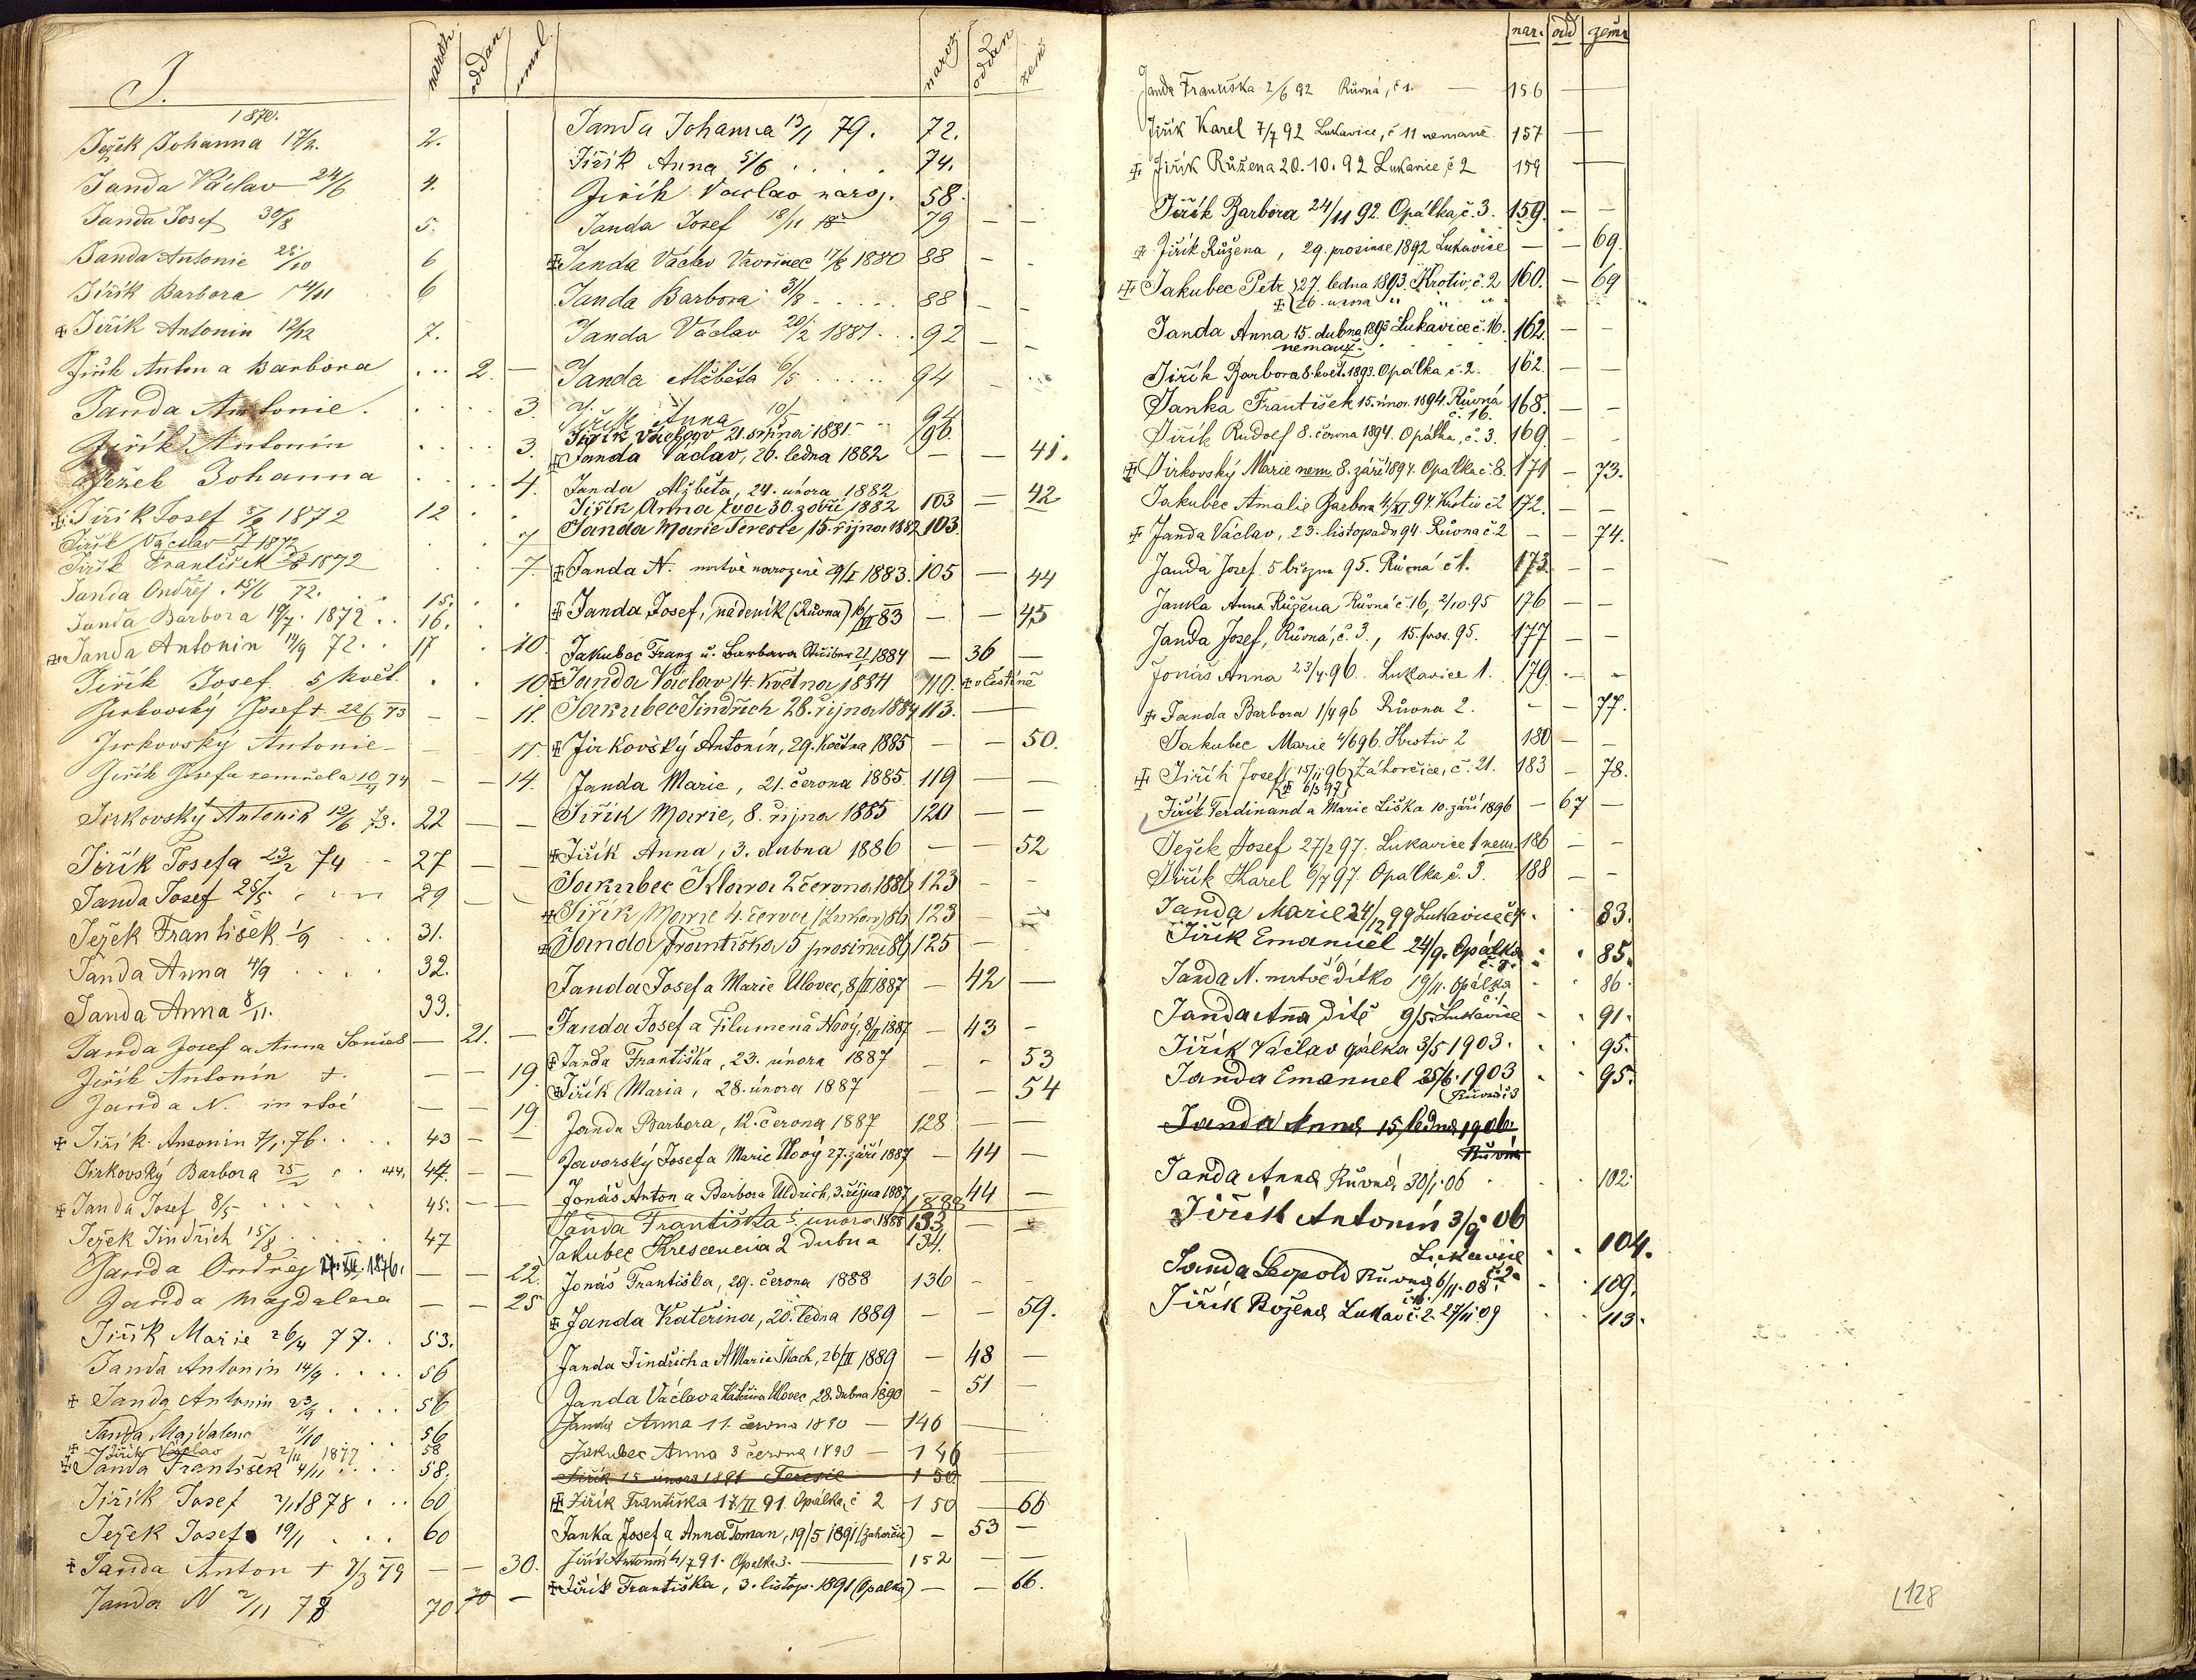 J.
naroz. oddan uml.
1870.
Ježek Johanna 17/2. 2.
Janda Václav 24/6 4.
Janda Josef 30/8 5.
Janda Antonie 28/10 6
Jiřík Barbora 14/11 6
Jiřík Antonín 12/12 7.
Jiřík Anton a Barbora 2.
Janda Antonie. 3.
Jiřík Antonín 3.
Ježek Johanna 4.
Jiřík Josef 1872 12
Jiřík Václav 1872 7
Jiřík František 1872 7.
Janda Ondřej 15/6 72. 15.
Janda Barbora 19/7. 1872 16.
Janda Antonín 14/9 72. 17 10.
Jiřík Josef 5 květ. 10
Jirkovský Josef + 22/6 73 11.
Jirkovský Antonie 11.
Jiřík Josefa zemřela 14.
Jirkovský Antonín 12/6 73. 22
Jiřík Josefa 23/2 74 27
Janda Josef 25/5 29
Ježek František 1/9 31.
Janda Anna 4/9 32.
Janda Anna 8/11. 33.
Janda Josef a Anna 21.
Jiřík Antonín +. 19.
Janda N. mrtvé 19.
Jiřík Antonín 7/1. 76. 43
Jirkovský Barbora 44.
Janda Josef 8/5 45.
Ježek Jindřich 15/8 47
Janda Ondřej 1876. 22.
Janda Majdalena 25
Jiřík Marie 26/4 77. 53.
Janda Antonín 14/9 56
Janda Antonín 23/9 56
Janda Majdalena 11/10 56
Jiřík Václav 2/11 1877 58
Janda František 4/11 58.
Jiřík Josef 1878 60
Ježek Josef 19/1 60
Janda Anton + 7/3 79 30.
Janda N 2/11 78 70
naroz. oddan zem.
Janda Johanna 13/1 79. 72.
Jiřík Anna 5/6 74.
Jiřík Václav naroz. 58.
Janda Josef 18/11 79
Janda Václav Vavřinec 17/6 1880 88
Janda Barbora 31/8 88
Janda Václav 20/2 1881 92
Janda Alžběta 6/5 94
Jiřík Anna 10/5 94
Jiřík Václav 21. srpna 1881 96.
Janda Václav, 26. ledna 1882 41.
Janda Alžběta, 24. února 1882 42
Jiřík Anna Eva 30. září 1882 103
Janda Marie Tereste 15. října 1882 103.
Janda N. mrtvě narozené 29/I 1883. 105 44
Janda Josef, nádeník (Růvna) 16/VI 83 45
Jakubec Franz u. Barbara 1884 36
Janda Václav 14. května 1884 110. v Čestíně
Jakubec Jindřich 28. října 1884 113.
Jirkovský Antonín, 29. května 1885 50.
Janda Marie, 21. června 1885. 119
Jiřík Marie, 8. října 1885 120
Jiřík Anna, 3. dubna 1886 52
Jakubec Klara 2 června 1886 123
Jiřík Marie 4. července 86 123
Janda Františka 5 prosince 86 125
Janda Josef a Marie Ulovec, 8/II 1887 42
Janda Josef a Filumena Nový, 8/II 1887 43
Janda Františka, 23. února 1887 53
Jiřík Maria, 28. února 1887 54
Janda Barbora, 12. června 1887 128
Javorský Josef a Marie Nový 27. září 1887 44
Jonáš Anton a Barbora Uldrich, 3. října 1887 44
1888
Janda Františka 5. února 1888 133
Jakubec Krescencia 2 dubna 134.
Jonáš Františka, 29. června 1888 136
Janda Kateřina, 20. ledna 1889 59.
Janda Jindřich a A Marie Skach, 26/II 1889 48
Janda Václav a Kateřina Ulovec, 28. dubna 1890 51
Janda Anna 11. června 1890 146
Jakubec Anna 3 června 1890 146
Jiřík 15 února 1891 Terezie 150
Jiřík Františka 17/II 91. Opálka č 2 150 66
Janka Josef a Anna Toman, 19/5 1891 (Zahorčic) 53
Jiřík Antonín 4/7 91. Opalka 3. 152
Jiřík Františka, 3. listop. 1891 (Opalka) 66.
nar. odd zemř
Janda Františka 2/6 92 Růvná, č 1. 156
Jiřík Karel 7/7 92 Lukavice, č 11 nemanž. 157
Jiřík Růžena 20. 10. 92 Lukavice, č 2 159
Jiřík Barbora 24/11 92. Opálka, č. 3. 159.
Jiřík Růžena, 29. prosince 1892 Lukavice 69.
Jakubec Petr 27. ledna 1893. Hrotiv, č. 2 160. 69
26. února " " "
Janda Anna 15. dubna 1893 Lukavice č. 16. 162.
nemanž.
Jiřík Barbora 8. květ. 1893. Opálka č. 2. 162.
Janka František 15. únor. 1894. Růvná 168.
č. 16.
Jiřík Rudolf 8. června 1894. Opálka, č. 3. 169
Jirkovský Marie nem 8. září 1894. Opalka č. 8. 171 73.
Jakubec Amalie Barbora 4/XI 94. Hrotiv č 2 172.
Janda Václav, 23. listopadu 94. Růvna č. 2 74.
Janda Josef 5 března 95. Růvná č 1. 173.
Janka Anna Růžena Růvná č. 16, 2/10. 95 176
Janda Josef, Růvná, č. 3., 15. pros. 95. 177
Jonáš Anna 23/4. 96. Lukavice 1. 179.
Janda Barbora 1/4 96 Růvna 2. 77.
Jakubec Marie 4/6 96. Hrotiv 2 180
Jiřík Josef 15/11 96 Záhorčice, č. 21. 183 78.
6/3 97
Jiřík Ferdinand a Marie Liška 10. září 1896 67
Ježek Josef 27/2 97. Lukavice 1 nem. 186
Jiřík Karel 6/7 97. Opálka, č. 3. 188
Janda Marie 24/12 99 Lukavice č 4. 83.
Jiřík Emanuel 24/9. Opálka 85.
Janda N. mrtvé dítko 19/11. Opálka 86.
č. 1.
Janda Anna dítě 9/5. Lukavice 91.
Jiřík Václav Opálka 3/5 1903. 95.
Janda Emanuel 25/6. 1903 95.
Růvná č 3
Janda Anna 15 ledna 1906.
Růvná
Janda Anna Růvná 30/1. 06 102.
Jiřík Antonín 3/9 06
Lukavice 104.
č 2.
Janda Leopold Růvná 6/11. 08. 109.
Jiřík Božena Lukav č. 2. 27/11 09 113.
128